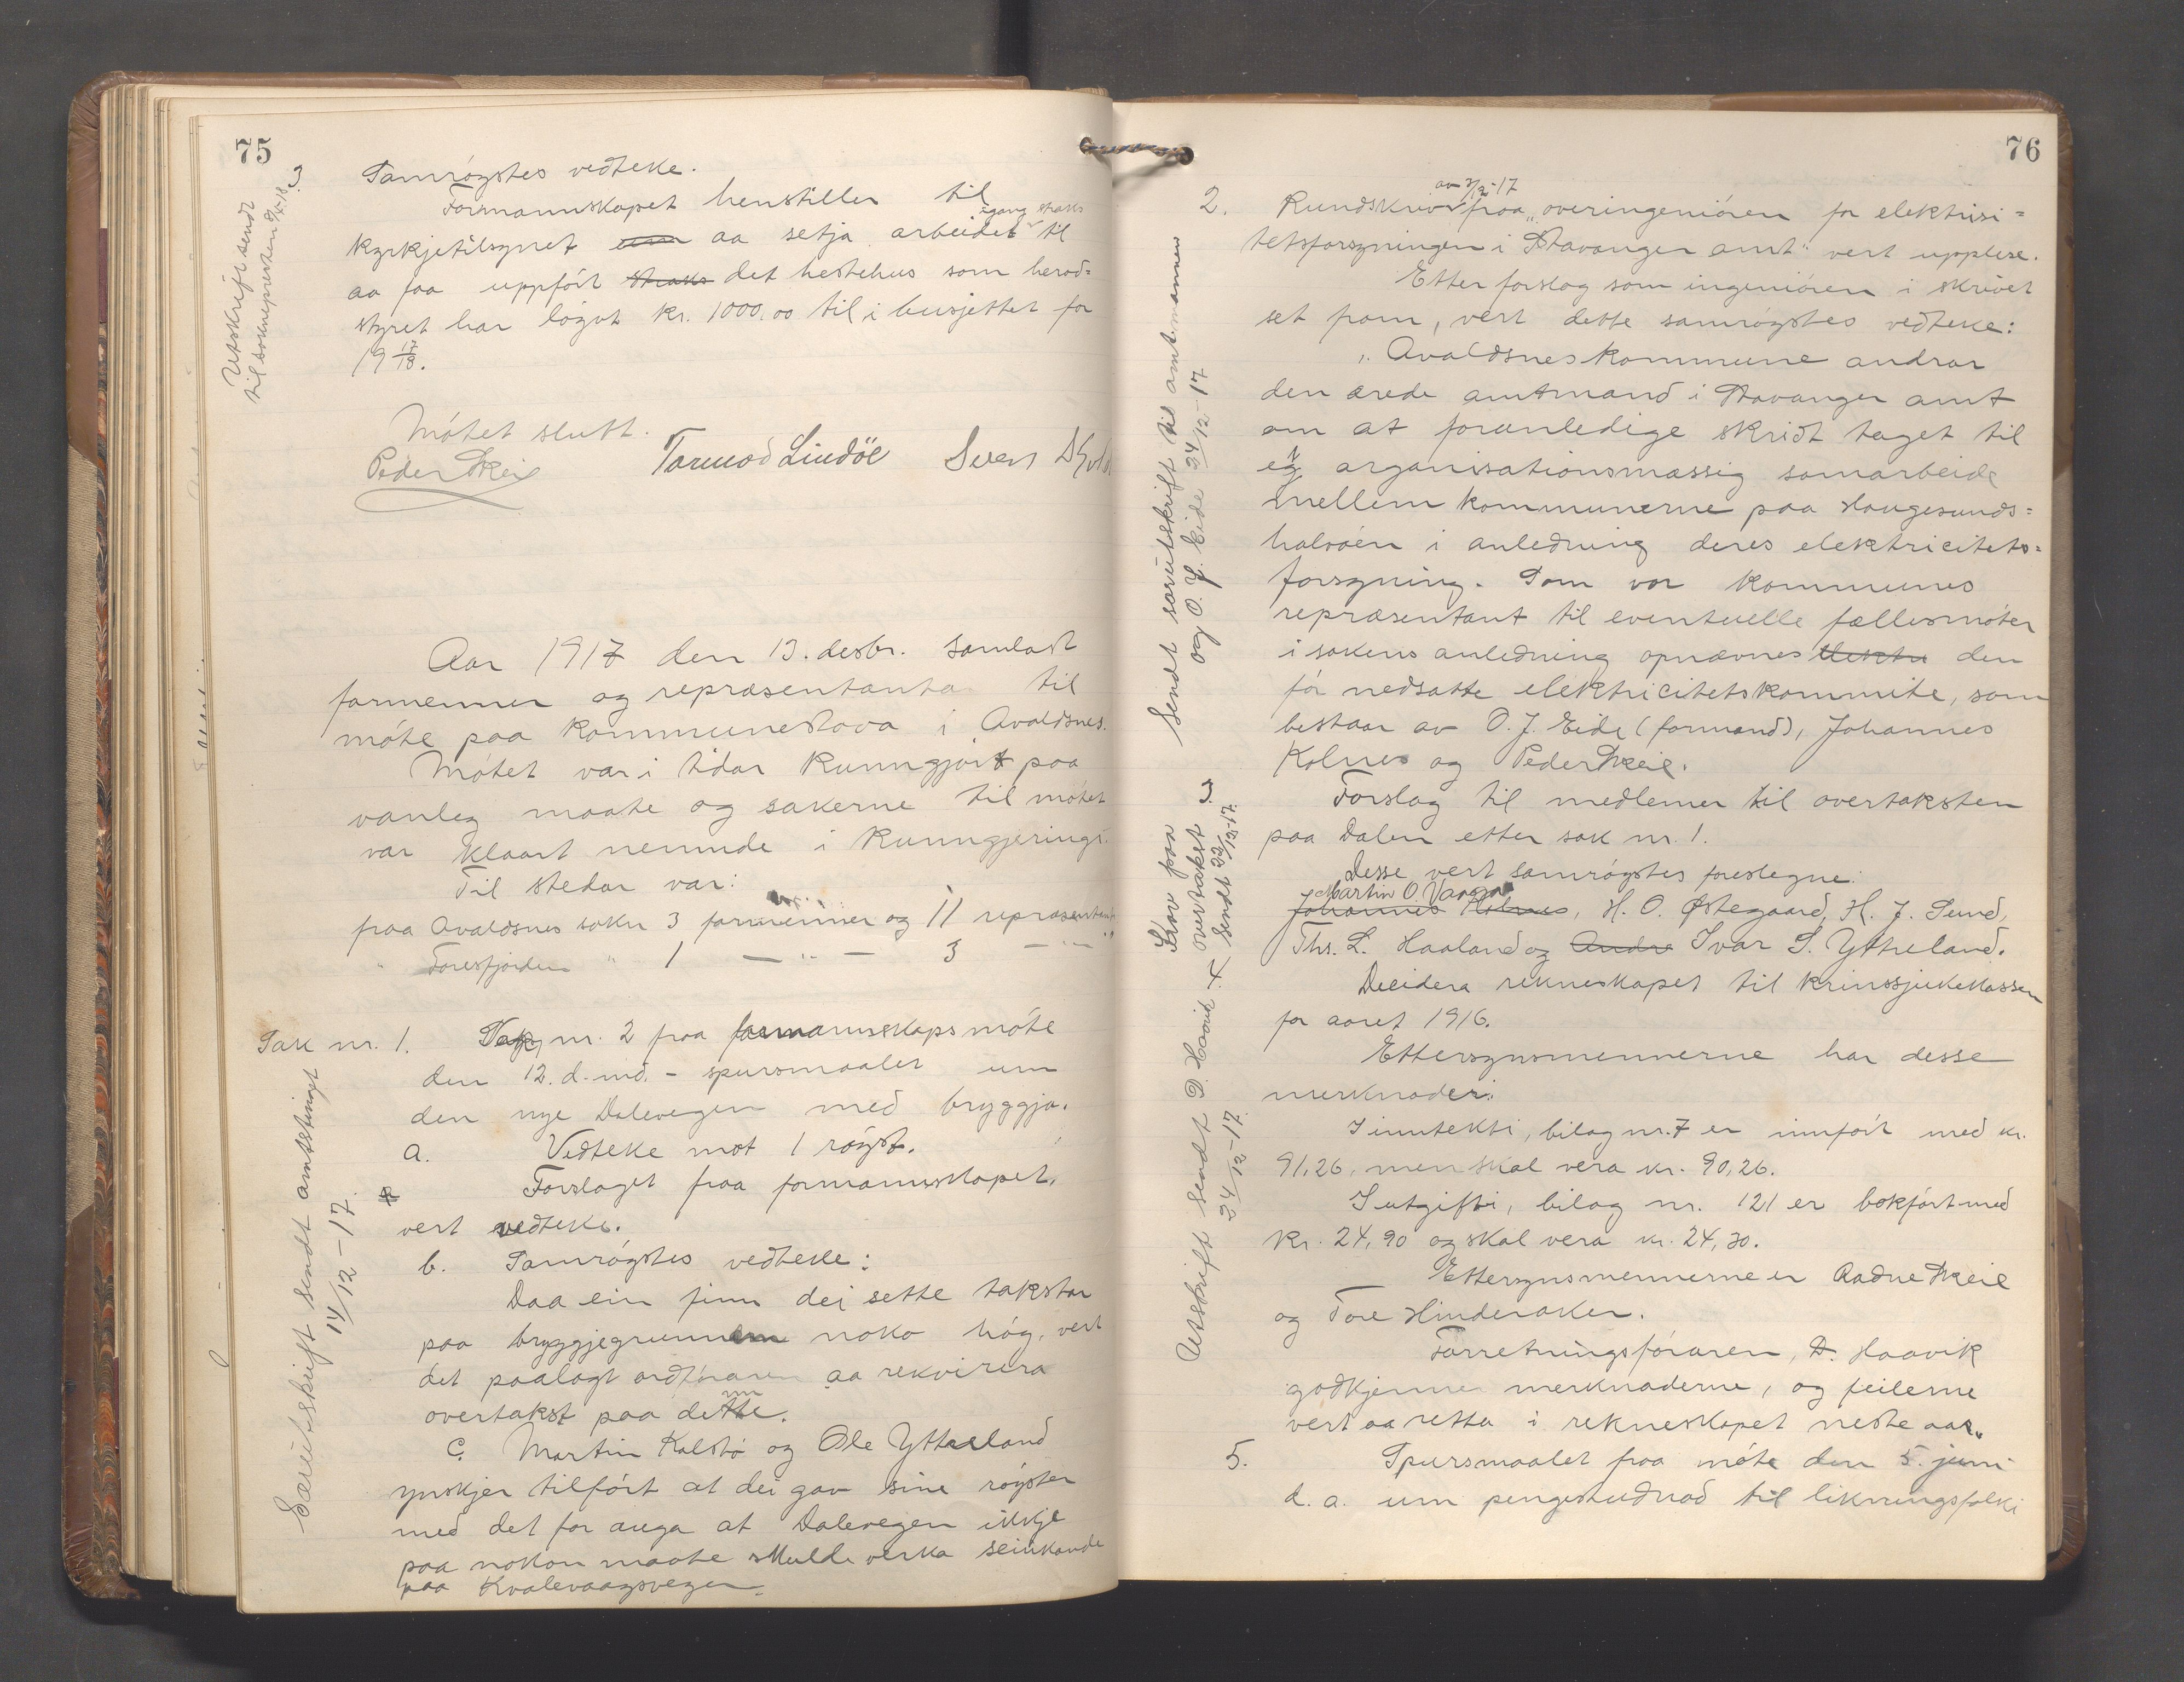 75
Utskrift sendt
til soknepresten
Samrøystes vedteke.
Formannskapet henstiller til
kyrkjetilsynet um aa setja arbeidet igang straks til
aa faa uppført straks det hestehus som herad=
styret har løgvt kr. 1000.00 til i busjettet for
19 17/18.
Møtet slutt.
Peder Skeie Tormod Lindöe Sven
Aar 1917 den 13. desbr. samlast
formenner og repræsentanta til
møte paa kommunestova i Avaldsnes.
Møtet var i tidar kunngjort paa
vanleg maate og sakerne til møtet
var klaart nemnde i kunngjeringi.
Til stedar var:
fraa Avaldsnes sokn 3 formenner og 11 repræsentant
" Foresfjorden " 1 — " — 3 — " —
Sak nr. 1. Sak nr. 2 fraa formannskapsmøte
den 12. d. md. - spursmaalet um
den nye Dalevegen med bryggja.
a. Vedteke mot 1 røyst.
Forslaget fraa formannskapet,
vert vedteke.
b. Samrøystes vedteke:
Daa ein finn dei sette takstar
paa bryggjegrunnen noko høg, vert
det paalagt ordføraren aa rekvirera
overtakst paa denne.
c. Martin Kalstø og Ole Ytteland
ynskjer tilført at dei gav sine røyster
med det for auga at Dalevegen ikkje
paa nokon maate skulde verka seinkande
paa Kvalevaagsvegen.
Særutskrift sendt amtstinget
14/12-17.
76
2. Rundskriv av 7/12-17 fraa "overingeniøren for elektrisi=
tetsforsyningen i Stavanger amt" vert upplese.
Etter forslag som ingeniøren i skrivet
set fram, vert dette samrøystes vedteke:
"Avaldsnes kommune andrar
den ærede amtmand i Stavanger amt
om at foranledige skridt taget til
en organisationsmæssig samarbeide
mellem kommunerne paa Haugesunds=
halvøen i anledning deres elektricitets=
forsyning. Som vor kommunes
repræsentant til eventuelle fællesmøter
i sakens anledning opnævnes elektri den
før nedsatte elektricitetskommite, som
bestaar av O. J. Eide (formand), Johannes
Kolnes og Peder Skeie.
Forslag til medlemer til overtaksten
paa Dalen etter sak nr. 1.
Desse vert samrøystes foreslegne:
Martin O. Vaaga
Johannes Kolnes, H. O. Østegaard, H. J. Sund,
Ths. L. Haaland og Andre Ivar S. Ytreland.
4. Decidera rekneskapet til krinssjukekassen
for aaret 1916.
Ettersynsmennerne har desse
merknader:
I inntekti, bilag nr. 7 er innført med kr.
91,26, men skal vera kr. 90,26.
I utgifti, bilag nr. 121 er bokført med
kr. 24,90 og skal vera kr. 24,30.
Ettersynsmennerne er Aadne Skeie
og Tore Hinderaker.
Forretningsføraren, D. Haavik
godkjenner merknaderne, og feilerne
vert aa retta i rekneskapet neste aar.
5. Spursmaalet fraa møte den 5. juni
d. a. um pengestudnad til likningsfolki
Sendt særutskrift til amtmannen
og O. J. Eide 24/12-17
3. Krav paa
overtakst
sendt 22/12-17.
Utskrift sendt D. Haavik
24/12-17.